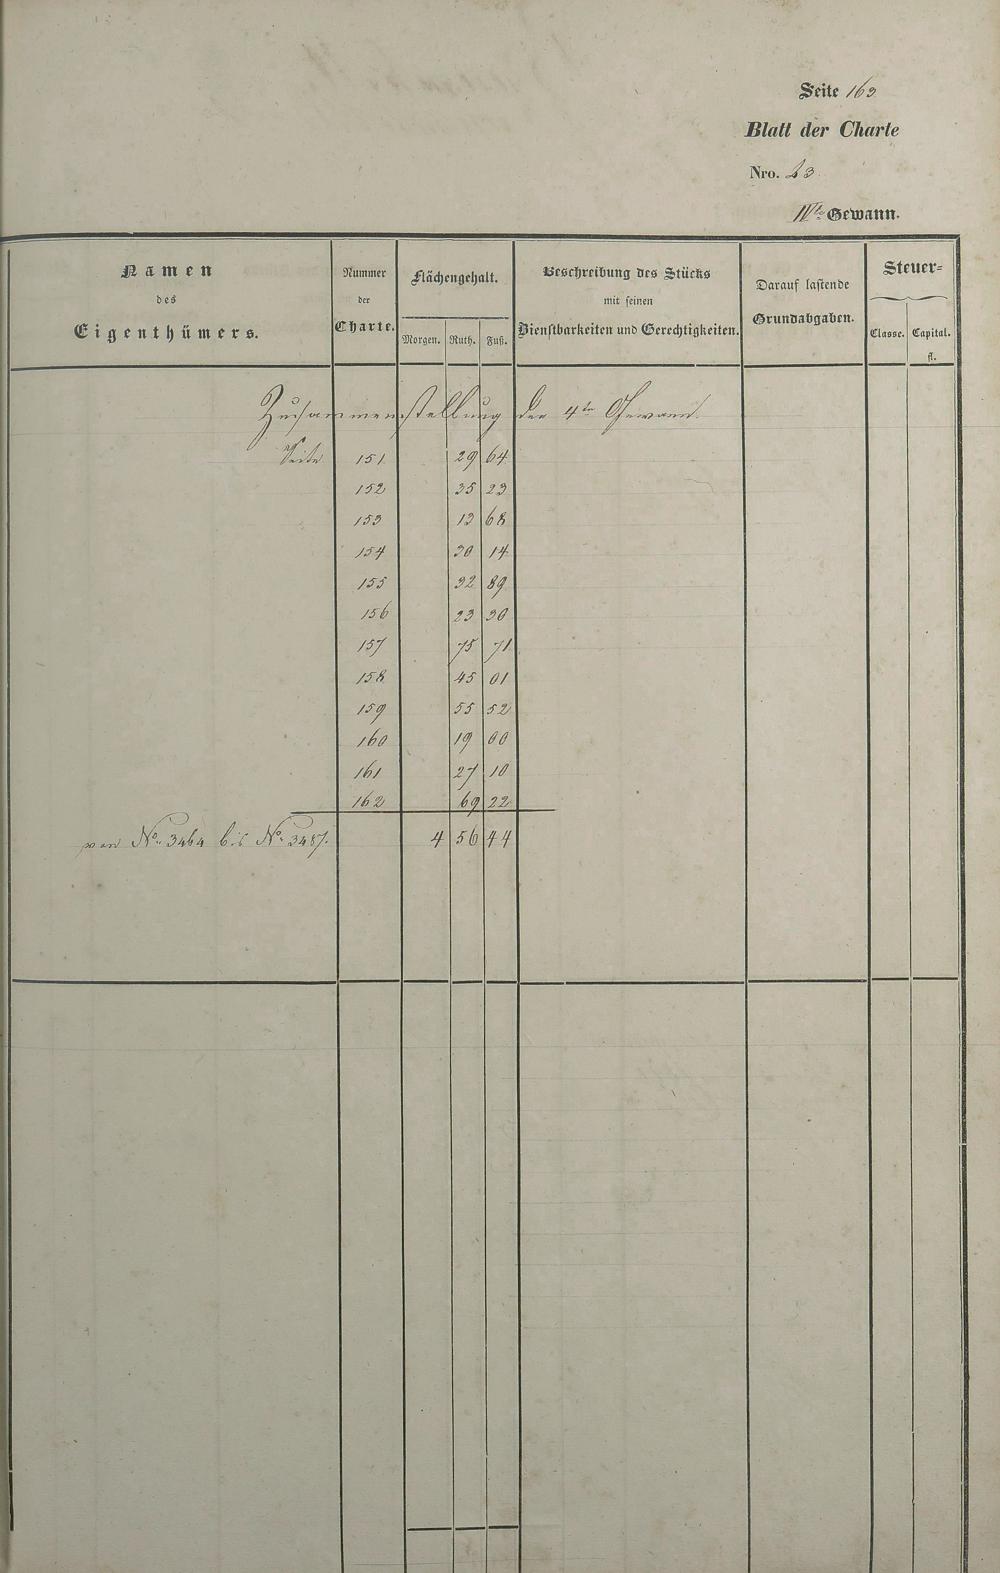 Seite 163
Blatt der Charte
Nro. 23
IVte Gewann.
Namen
des
Eigenthümers.
Nummer
der
Charte.
Flächengehalt.
Morgen. Ruth. Fuß.
Beschreibung des Stücks
mit seinen
Dienstbarkeiten und Gerechtigkeiten.
Darauf lastende
Grundabgaben.
Steuer=
Classe. Capital.
fl.
Zusammenstellung der 4ten Gewann.
Seite 151 29 64
152 35 23
153 13 68
154 30 14
155 32 89
156 23 30
157 75 71
158 45 01
159 55 52
160 19 00
161 27 10
162 69 22
von No. 3464 bis No. 3487. 4 56 44